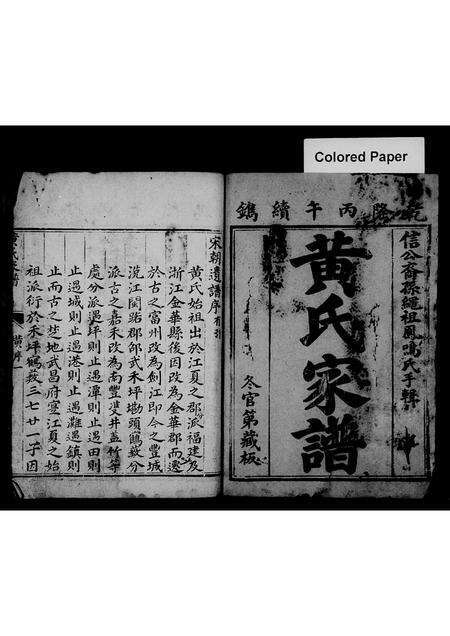 Colored Paper
乾隆丙午續鐫
信公裔孫繩祖鳳鳴氏手輯
黄氏家譜
冬官第藏板
宋朝遺譜序
黃氏始祖出於江夏之郡派福建及
浙江金華縣後因改為金華郡而遷
於古之富州改為劍江即今之豐城
沇江閩路郡邵武禾坪墈頭鶴薮分
派古之嘉禾改為南豐雙井盖竹等
處分派遇坪則止遇潭則止遇田則
止遇城則止遇港則止遇灘遇鎮則
止而古之楚地武昌府黨江夏之始
祖派衍於禾坪鶴薮三七廿一子因